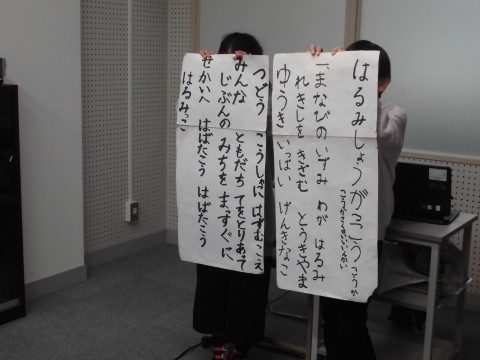 はるみしょうがっこう こうか
こうかさくせいいいんかい
一、まなびのいずみ わが はるみ
れきしを きざむ とうきやま
ゆうき いっぱい げんきなこ
つどう こうしゃに はずむ こえ
みんな ともだち てをとりあって
じぶんの みちを まっすぐに
せかいへ はばたこう はばたこう
はるみっこ